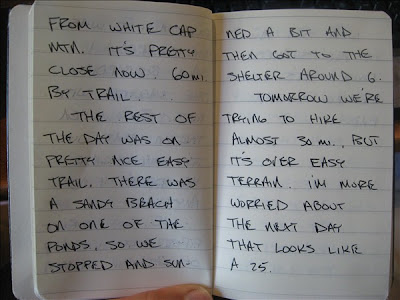 FROM WHITE CAP
MTN. IT'S PRETTY
CLOSE NOW 60 MI.
BY TRAIL.
THE REST OF
THE DAY WAS ON
PRETTY NICE EASY
TRAIL. THERE WAS
A SANDY BEACH
ON ONE OF THE
PONDS. SO WE
STOPPED AND SUN-
NED A BIT AND
THEN GOT TO THE
SHELTER AROUND 6.
TOMORROW WE'RE
TRYING TO HIKE
ALMOST 30 MI., BUT
IT'S OVER EASY
TERRAIN. I'M MORE
WORRIED ABOUT
THE NEXT DAY
THAT LOOKS LIKE
A 25.